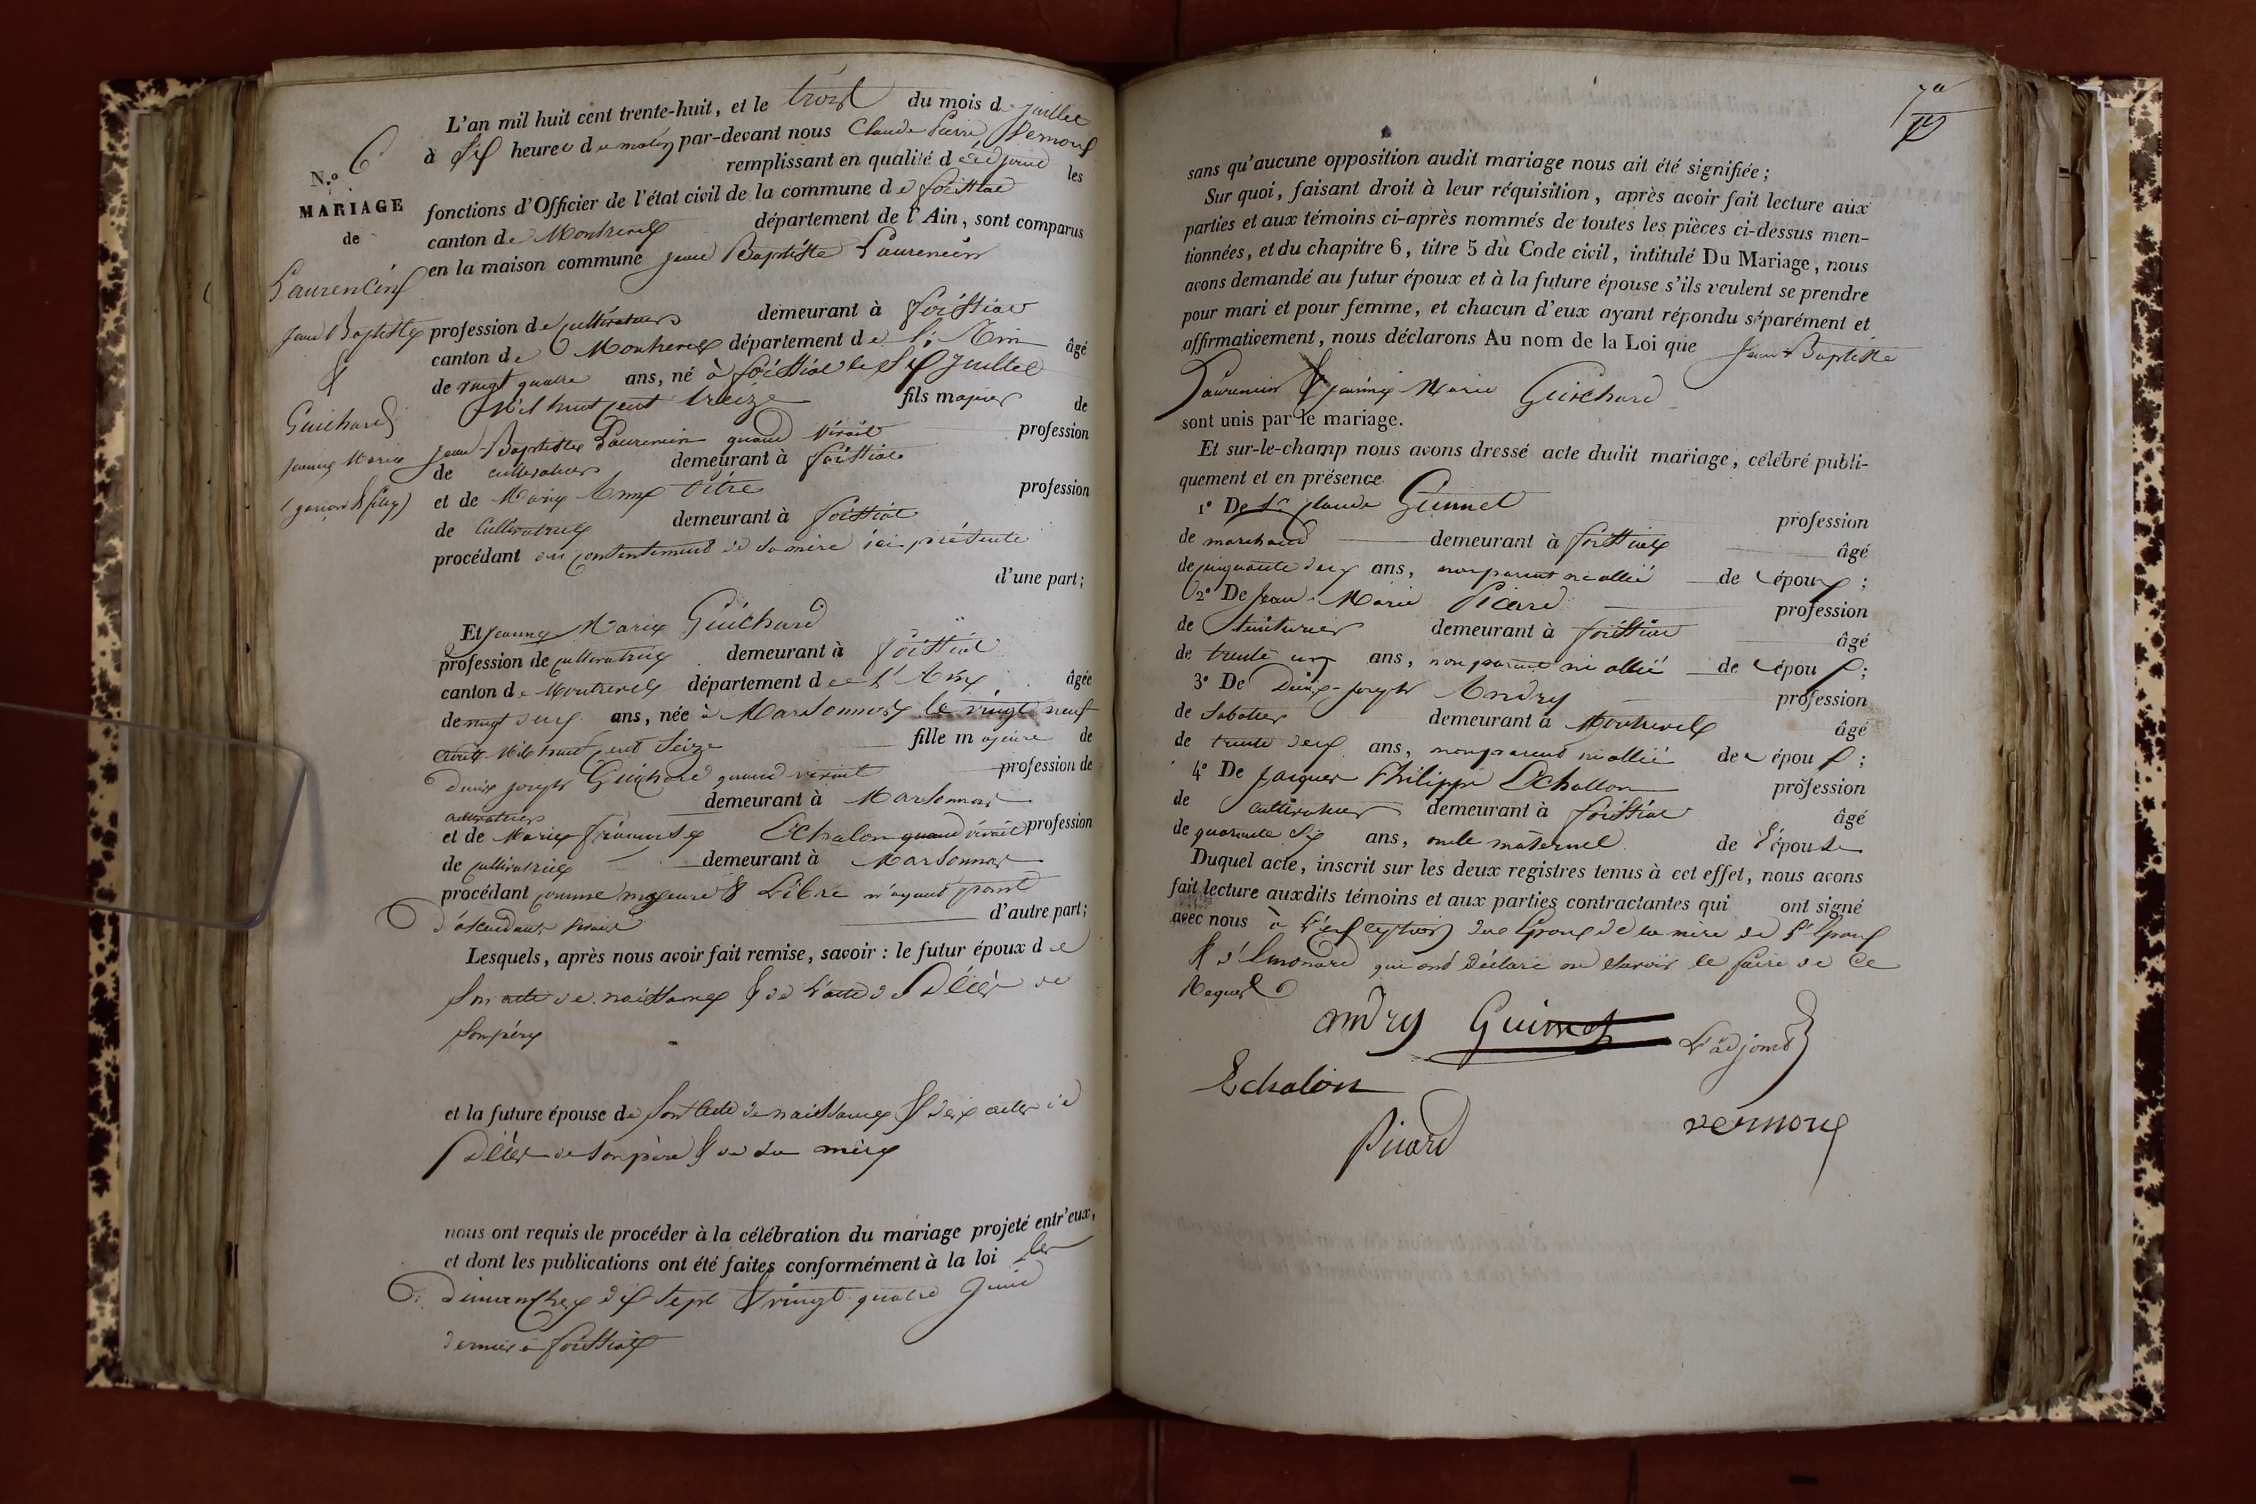 L'an mil huit cent trente-huit, et le trois du mois de juillet
à six heures du matin par-devant nous Claude Pierre Vernoux
remplissant en qualité d'adjoint les
N.o 6
MARIAGE
de
Laurencin
Jean Baptiste
&
Guichard
Jeanne Marie
(garçon & fille)
fonctions d'Officier de l'état civil de la commune de foissiat
canton de Montrevel département de l'Ain, sont comparus
en la maison commune Jean Baptiste Laurencin
profession de cultivateur demeurant à foissiat
canton de Montrevel département de l'Ain âgé
de vingt quatre ans, né à foissiat le six juillet
mil huit cent treize fils majeur de
Jean Baptiste Laurencin quand vivait profession
de cultivateur demeurant à foissiat
et de Marie Anne profession
de cultivatrice demeurant à foissiat
procédant du consentement de sa mère ici présente
d'une part;
Et Jeanne Marie Guichard
profession de cultivatrice demeurant à foissiat
canton de Montrevel département de l'Ain âgée
de vingt deux ans, née à Marsonnas le vingt neuf
avril mil huit cent seize fille majeure de
Denis joseph Guichard quand vivait profession de
cultivateur demeurant à Marsonnas
et de Marie françoise Echalon quand vivait profession
de cultivatrice demeurant à Marsonnas
procédant comme majeure & Libre n'ayant point
d'ascendants vivants d'autre part;
Lesquels, après nous avoir fait remise, savoir : le futur époux de
son acte de naissance & de l'acte de Décès de
son père
et la future épouse de son acte de naissance & des actes de
Décès de son père & de sa mère
nous ont requis de procéder à la célébration du mariage projeté entr'eux,
et dont les publications ont été faites conformément à la loi les
dimanches dix sept & vingt quatre juin
dernier à foissiat
sans qu'aucune opposition audit mariage nous ait été signifiée;
Sur quoi, faisant droit à leur réquisition, après avoir fait lecture aux
parties et aux témoins ci-après nommés de toutes les pièces ci-dessus men-
tionnées, et du chapitre 6, titre 5 du Code civil, intitulé Du Mariage, nous
avons demandé au futur époux et à la future épouse s'ils veulent se prendre
pour mari et pour femme, et chacun d'eux ayant répondu séparément et
affirmativement, nous déclarons Au nom de la Loi que Jean Baptiste
Laurencin & jeanne Marie Guichard
sont unis par le mariage.
Et sur-le-champ nous avons dressé acte dudit mariage, célébré publi-
quement et en présence
1º De Sr claude Guimet profession
de marchand demeurant à foissiat âgé
de cinquante deux ans, non parent ni allié de époux;
2º De Jean Marie Picard profession
de teinturier demeurant à foissiat âgé
de trente un ans, non parent ni allié de époux;
3º De Denis joseph Andry profession
de Sabotier demeurant à Montrevel âgé
de trente deux ans, non parent ni allié de époux;
4º De Jacques Philippe Echallon profession
de cultivateur demeurant à foissiat âgé
de quarante six ans, oncle maternel de l'épouse
Duquel acte, inscrit sur les deux registres tenus à cet effet, nous avons
fait lecture auxdits témoins et aux parties contractantes qui ont signé
avec nous à l'exception des Epoux de la mère de l'Epoux
qui ont déclaré ne savoir le faire de ce
Requis
andry Guimet L'adjoint
Echalon
vernoux
Picard